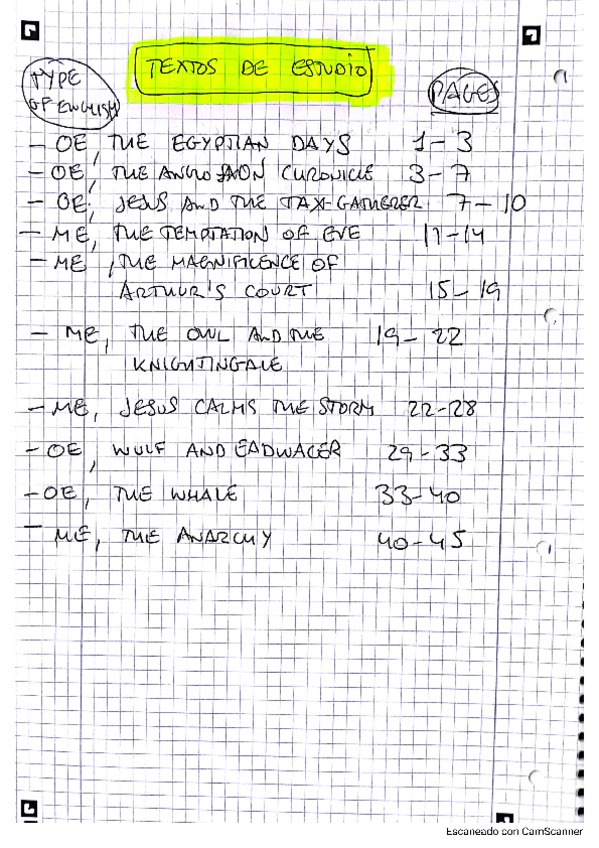 TEXTOS DE ESTUDIO
TYPE OF ENGLISH
PAGES
- OE, THE EGYPTIAN DAYS 1-3
- OE, THE ANGLO SAXON CHRONICLE 3-7
- OE, JESUS AND THE TAX-GATHERER 7-10
- ME, THE TEMPTATION OF EVE 11-14
- ME, THE MAGNIFICENCE OF
ARTHUR'S COURT 15-19
- ME, THE OWL AND THE 19-22
KNIGHTINGALE
- ME, JESUS CALMS THE STORM 22-28
- OE, WULF AND EADWACER 29-33
- OE, THE WHALE 33-40
- ME, THE ANARCHY 40-45
Escaneado con CamScanner